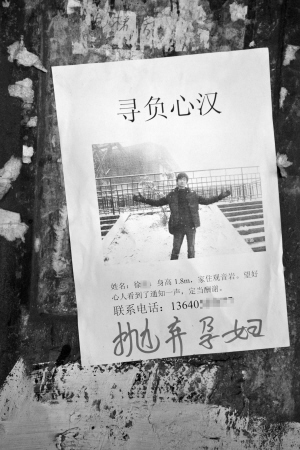 寻负心汉
姓名：徐 身高1.8m，家住观音岩。望好
心人看到了通知一声，定当酬谢。
联系电话：13640
抛弃孕妇